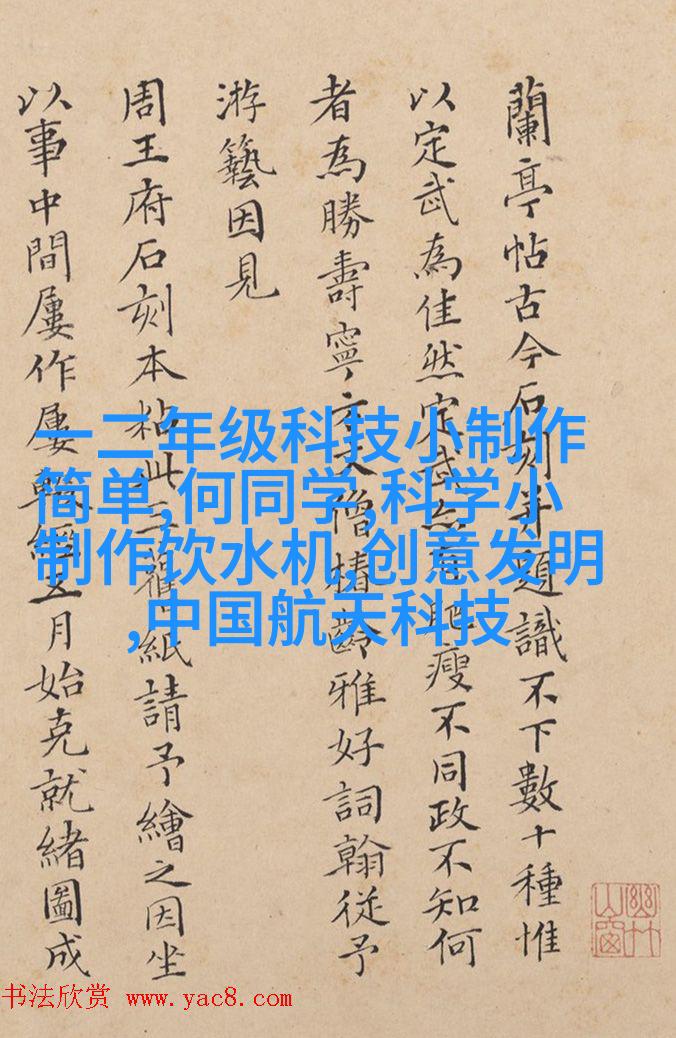 蘭亭帖古今石刻并題識不下數十種惟
以定武為佳然定武亦肥瘦不同政不知何
者為勝壽寧僧齡雅好詞翰從予
游藝因見
周王府石刻本粘此舊紙請予繪之因坐
以事中間屢作屢輟經五月始克就緒圖成
幽竹山窗
一二年级科技小制作
简单,何同学,科学小
制作饮水机,创意发明
,中国航天科技
书法欣赏 www.yac8.com